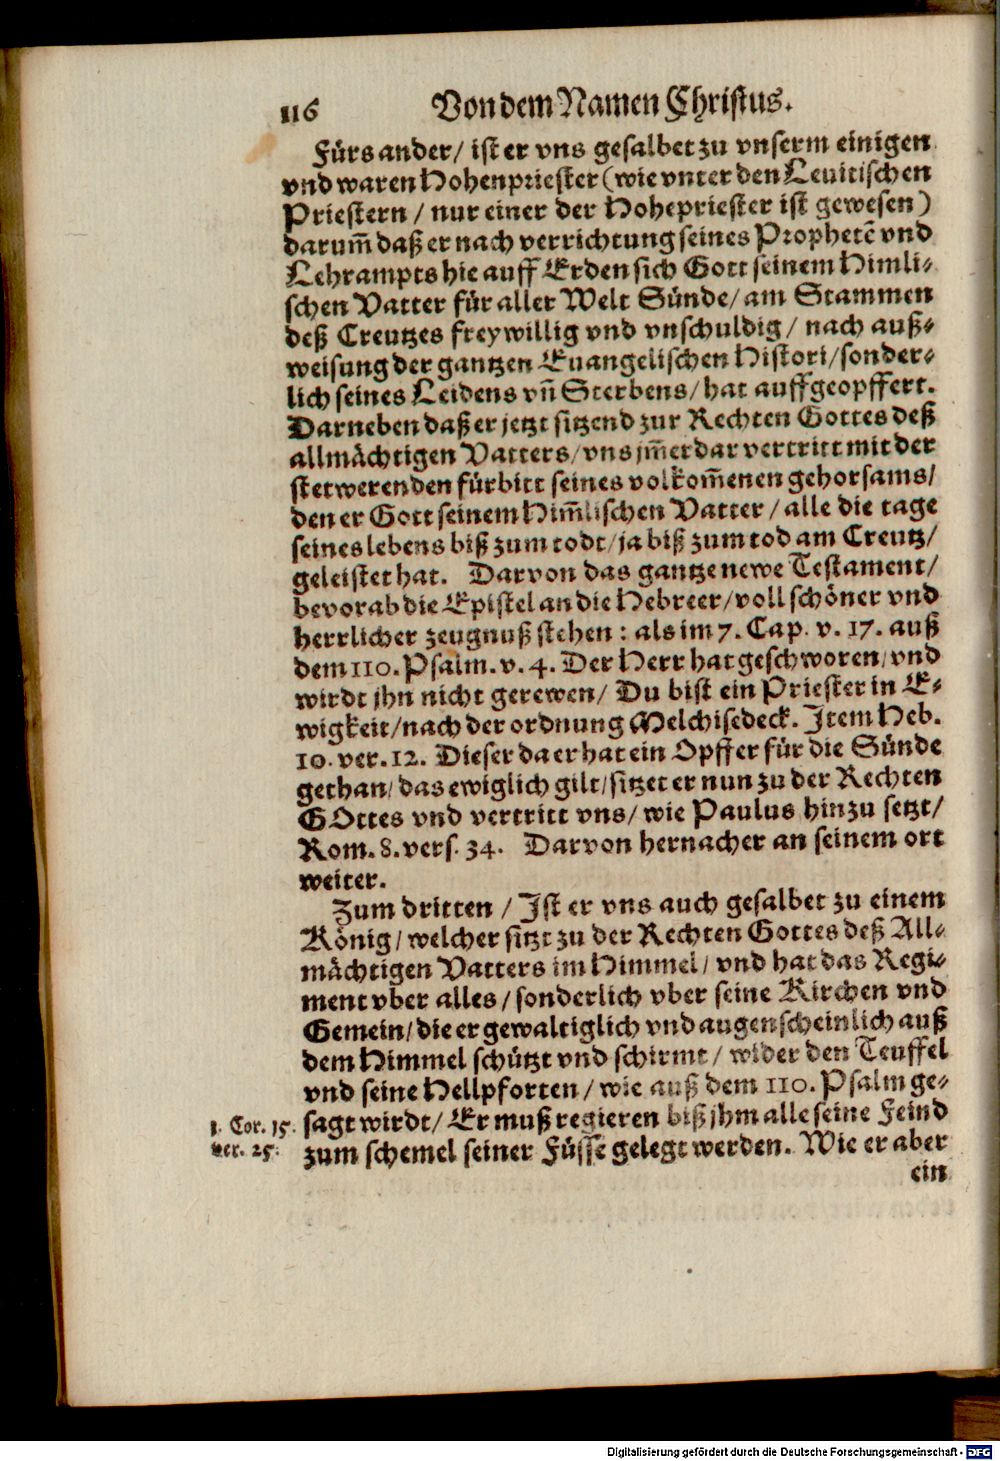 116 Von dem Namen Christus.
Fürs ander/ ist er vns gesalbet zu vnserm einigen
vnd waren Hohenpriester (wie vnter den Leuitischen
Priestern / nur einer der Hohepriester ist gewesen)
darum̃ daß er nach verrichtung seines Prophetẽ vnd
Lehrampts hie auff Erden sich Gott seinem Himli-
schen Vatter für aller Welt Sünde/ am Stammen
deß Creutzes freywillig vnd vnschuldig / nach auß-
weisung der gantzen Euangelischen Histori/ sonder-
lich seines Leidens vñ Sterbens/ hat auffgeopffert.
Darneben daß er jetzt sitzend zur Rechten Gottes deß
allmächtigen Vatters/ vns jm̃erdar vertritt mit der
stetwerenden fürbitt seines volkom̃enen gehorsams/
den er Gott seinem Him̃lischen Vatter / alle die tage
seines lebens biß zum todt/ ja biß zum tod am Creutz/
geleistet hat. Darvon das gantze newe Testament/
bevorab die Epistel an die Hebreer/ voll schöner vnd
herrlicher zeugnuß stehen : als im 7. Cap. v. 17. auß
dem 110. Psalm. v. 4. Der Herr hat geschworen/ vnd
wirdt jhn nicht gerewen/ Du bist ein Priester in E-
wigkeit/ nach der ordnung Melchisedeck. Item Heb.
10. ver. 12. Dieser da er hat ein Opffer für die Sünde
gethan/ das ewiglich gilt/ sitzet er nun zu der Rechten
GOttes vnd vertritt vns/ wie Paulus hinzu setzt/
Rom. 8. vers. 34. Darvon hernacher an seinem ort
weiter.
Zum dritten / Ist er vns auch gesalbet zu einem
König/ welcher sitzt zu der Rechten Gottes deß All-
mächtigen Vatters im Himmel/ vnd hat das Regi-
ment vber alles/ sonderlich vber seine Kirchen vnd
Gemein/ die er gewaltiglich vnd augenscheinlich auß
dem Himmel schützt vnd schirmt/ wider den Teuffel
vnd seine Hellpforten/ wie auß dem 110. Psalm ge-
1. Cor. 15. sagt wirdt/ Er muß regieren biß jhm alle seine Feind
ver. 25. zum schemel seiner Füsse gelegt werden. Wie er aber
ein
Digitalisierung gefördert durch die Deutsche Forschungsgemeinschaft - DFG